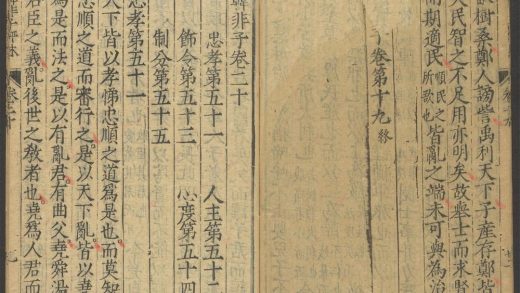 樹桑鄭人謗訾禹利天下子產存鄭皆
夫民智之不足用亦明矣故舉士而求賢
而期適民順民之所欲也皆亂之端未可與為治
子卷第十九終
韓非子卷二十
忠孝第五十一 人主第五十二
飭令第五十三 心度第五十四
制分第五十五
忠孝第五十一
天下皆以孝悌忠順之道為是也而莫知
忠順之道而審行之是以天下亂皆以堯
為是而法之是以有亂君有曲父堯舜湯
君臣之義亂後世之教者也堯為人君而